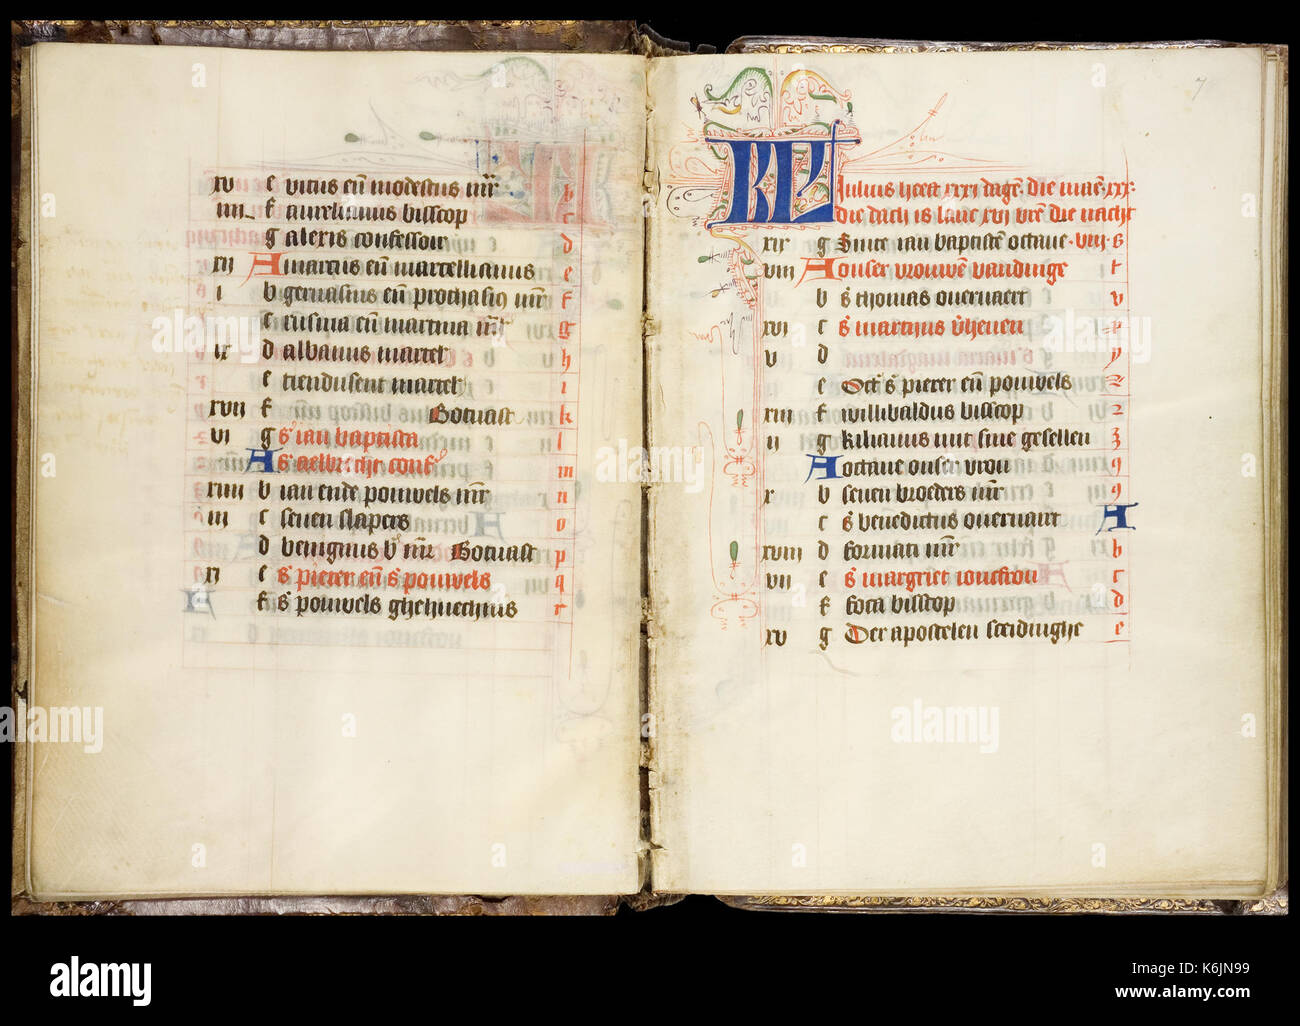 xv e vitus eñ modestus mr̃ b
iiii f aurelianus bisscop c
g alexis confessoir d
xii A marcus eñ marcellianus e
i b gervasius eñ prothasius mr̃ f
c eufina eñ martina mr̃ g
ix d albanus martel h
e tiendusent martel i
xvii f Gotvast k
vi g s' ian baptista l
A s' aelbrecht conf' m
xiiii b ian ende pouwels mr̃ n
iii c seven slapers o
d benignus b' mr̃ Gotvast p
xi e s' pieter eñ s' pouwels q
f s' pouwels ghehuechnis r
7
KL Iulius heeft xxxi daghẽ die maẽ xxx
die dach is lanc xvi vrẽ die nacht
xix g Sinte ian baptistẽ octave viii G
viii A onser vrouwẽ vandinge t
b s' thomas overvaert v
xvi c s' martijns v'heven
v d y
e Oct' s' pieter eñ pouwels
xiii f willibaldus bisscop 2
ii g kilianus mit sine gesellen 3
A octave onser vrou 9
x b seven broeders mr̃ 9
c s' benedictus overvaert A
xviii d formati mr̃ b
vii e s' margriet ionfrou c
f foca bisscop d
xv g Der apostelen sceidinghe e
alamy stock photo
K6JN99
www.alamy.com